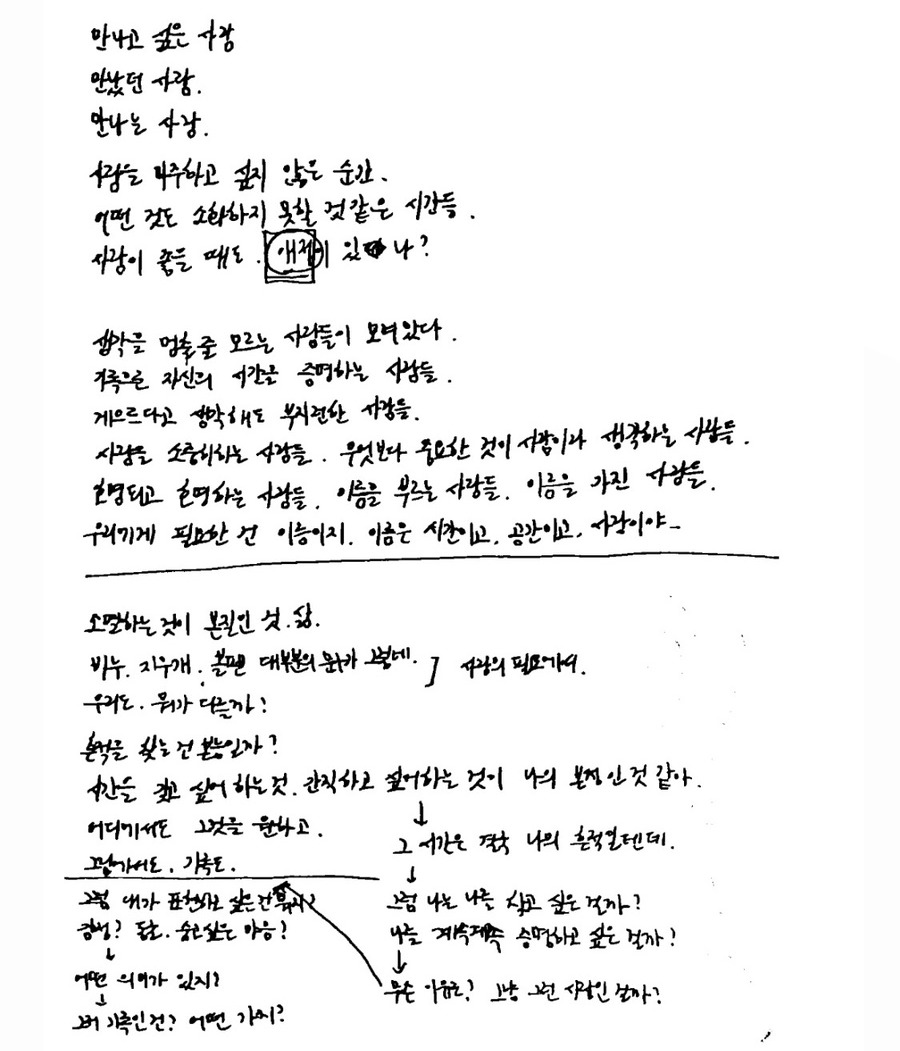 만나고 싶은 사람
만났던 사람.
만나는 사람.
사람을 마주하고 싶지 않은 순간.
어떤 것도 소화하지 못할 것같은 시간들.
사람이 좋을 때도. 이 있 나?
생각을 멈출 줄 모르는 사람들이 모여있다.
기록으로 자신의 시간을 증명하는 사람들.
게으르다고 생각해도 부지런한 사람들.
사람을 소중히하는 사람들. 무엇보다 중요한 것이 사람이라 생각하는 사람들.
호명되고 호명하는 사람들. 이름을 부르는 사람들. 이름을 가진 사람들.
우리에게 필요한 건 이름이지. 이름은 시간이고, 공간이고, 사람이야_
소멸하는 것이 본질인 것. 삶.
비누. 지우개. 볼펜 대부분의 문구가 그럴테.
] 사람의 필요에서.
우리도. 뭐가 다를까?
흔적을 찾는 건 본능일까?
시간을 갖고 싶어 하는 것. 간직하고 싶어하는 것이 나의 본질인 것 같아.
어디에서도 그것을 원하고.
기록도.
↓
그 시간은 결국 나의 흔적일텐데.
↓
그럼 나는 나를 찾고 싶은 걸까?
나를 계속계속 증명하고 싶은 걸까?
↓
무슨 이유로? 그냥 그런 사람인 걸까?
그럼 내가 표현하고 싶은 건 뭐지?
감정? 숨고싶은 마음?
↓
어떤 의미가 있지?
↓
기록인건? 어떤 가치?